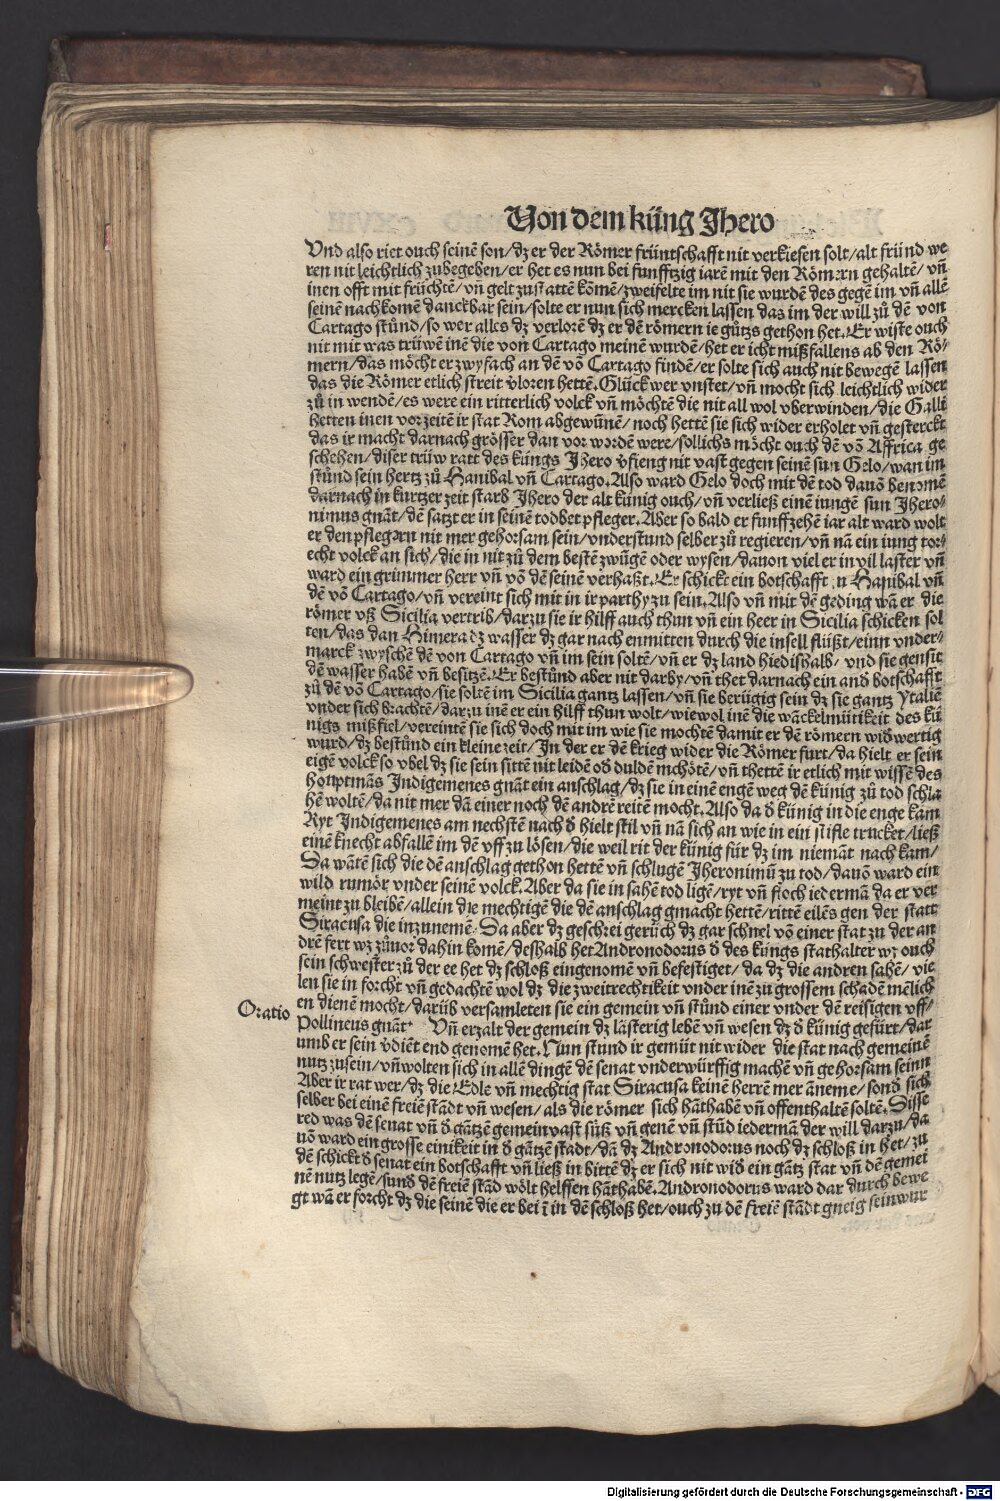 Von dem küng Jhero
Vnd also riet ouch seinē son/dz er der Römer früntschafft nit verkiesen solt/alt fründ we
ren nit leichtlich zubegeben/er het es nun bei funfftzig iarē mit den Römern gehaltē/vñ
inen offt mit früchtē/vñ gelt zustattē kōmē/zweifelte im nit sie wurdē des gegē im vñ alle
seinē nachkomē danckbar sein/solte er nun sich mercken lassen das im der will zů dē von
Cartago stůnd/so wer alles dz verlorē dz er dē römern ie gůtzs gethon het. Er wiste ouch
nit mit was trüwē inē die von Cartago meinē wurdē/het er icht mißfallens ab den Rö⸗
mern/das möcht er zwyfach an dē vō Cartago findē/er solte sich auch nit bewegē lassen
das die Römer etlich streit v̄loren hettē. Glück wer vnstet/vñ mocht sich leichtlich wider
zů in wendē/es were ein ritterlich volck vñ möchtē die nit all wol vberwinden/die Galli
hetten inen vorzeitē ir stat Rom abgewūnē/noch hettē sie sich wider erholet vñ gesterckt
das ir macht darnach grösser dan vor wordē were/sollichs möcht ouch dē vō Affrica ge
schehen/diser trüw ratt des küngs Jhero v̄fieng nit vast gegen seinē sun Gelo/wan im
stůnd sein hertz zů Hanibal vñ Cartago. Also ward Gelo doch mit dē tod dauō benomē
darnach in kurtzer zeit starb Jhero der alt künig ouch/vñ verließ einē iungē sun Jhero⸗
nimus gnāt/dē satzt er in seinē todbet pfleger. Aber so bald er funffzehē iar alt ward wolt
er den pflegern nit mer gehorsam sein/vnderstund selber zů regieren/vñ nā ein iung tor⸗
echt volck an sich/die in nit zů dem bestē zwūgē oder wysen/dauon viel er in vil laster vñ
ward ein grimmer herr vñ vō dē seinē verhaßt. Er schickt ein botschafft zu Hanibal vñ
dē vō Cartago/vñ vereint sich mit in ir parthy zu sein. Also vñ mit dē geding wā er die
römer vß Sicilia vertrib/darzu sie ir hilff auch thun vñ ein heer in Sicilia schicken sol
ten/das dan Himera dz wasser dz gar nach enmitten durch die insell flüßt/einn vnder⸗
marck zwyschē dē von Cartago vñ im sein soltē/vñ er dz land hiedishalb/ vnd sie gensit
dē wasser habē vñ besitzē. Er bestůnd aber nit darby/vñ thet darnach ein and botschafft
zů dē vō Cartago/sie soltē im Sicilia gantz lassen/vñ sie berügig sein dz sie gantz Ytaliē
vnder sich brachtē/darzu inē er ein hilff thun wolt/wiewol inē die wāckelmütikeit des kü
nigs mißfiel/vereintē sie sich doch mit im wie sie mochtē damit er dē römern wid̄wertig
wurd/dz bestůnd ein kleine zeit/In der er dē krieg wider die Römer furt/da hielt er sein
eigē volck so vbel dz sie sein sittē nit leidē od̄ duldē mchötē/vñ thettē ir etlich mit wissē des
houptmās Indigemenes gnāt ein anschlag/dz sie in einē engē weg dē künig zů tod schla
hē woltē/da nit mer dā einer noch dē andrē reitē mocht. Also da d̄ künig in die enge kam
Ryt Indigemenes am nechstē nach d̄ hielt stil vñ nā sich an wie in ein stifle trucket/ließ
einē knecht abfallē im dē vff zu lösen/die weil rit der künig für dz im niemāt nach kam/
Da wātē sich die dē anschlag gethon hettē vñ schlugē Jheronimū zu tod/dauō ward ein
wild rumör vnder seinē volck. Aber da sie in sahē tod ligē/ryt vñ floch iedermā da er ver
meint zu bleibē/allein die mechtigē die dē anschlag gmacht hettē/rittē eilēs gen der statt
Siracusa die inzunemē. Da aber dz geschrei gerüch dz gar schnel vō einer stat zu der an
drē fert wz zůuor dahin komē/deshalb het Andronodorus d̄ des küngs stathalter wz ouch
sein schwester zů der ee het dz schloß eingenomē vñ befestiget/da dz die andren sahē/vie
len sie in forcht vñ gedachtē wol dz die zweitrechtikeit vnder inē zu grossem schadē mēlich
en dienē mocht/darüb versamleten sie ein gemein vñ stůnd einer vnder dē reisigen vff⸗
Oratio
Pollineus gnāt. Vñ erzalt der gemein dz lästerig lebē vñ wesen dz d̄ künig gefürt/dar
umb er sein v̄diēt end genomē het. Nun stund ir gemüt nit wider die stat nach gemeinē
nutz zusein/vñ wolten sich in allē dingē dē senat vnderwürffig machē vñ gehorsam seinn
Aber ir rat wer/dz die Edle vñ mechtig stat Siracusa keinē herrē mer āneme/sond̄ sich
selber bei einē freiē stādt vñ wesen/als die römer sich hāthabē vñ offenthaltē soltē. Disse
red was dē senat vñ d̄ gātzē gemein vast süß vñ genē vñ stůd iedermā der will darzu/da
uō ward ein grosse einikeit in d̄ gātzē stadt/dā dz Andronodorus noch dz schloß in het/zu
dē schickt d̄ senat ein botschafft vñ ließ in bittē dz er sich nit wid̄ ein gātz stat vñ dē gemei
nē nutz legē/sund̄ dē freiē stād wölt helffen hāthabē. Andronodorus ward dar durch bewe
gt wā er forcht dz die seinē die er bei ī in dē schloß het/ouch zu dē freiē stādt gneig sein wur
Digitalisierung gefördert durch die Deutsche Forschungsgemeinschaft - DFG